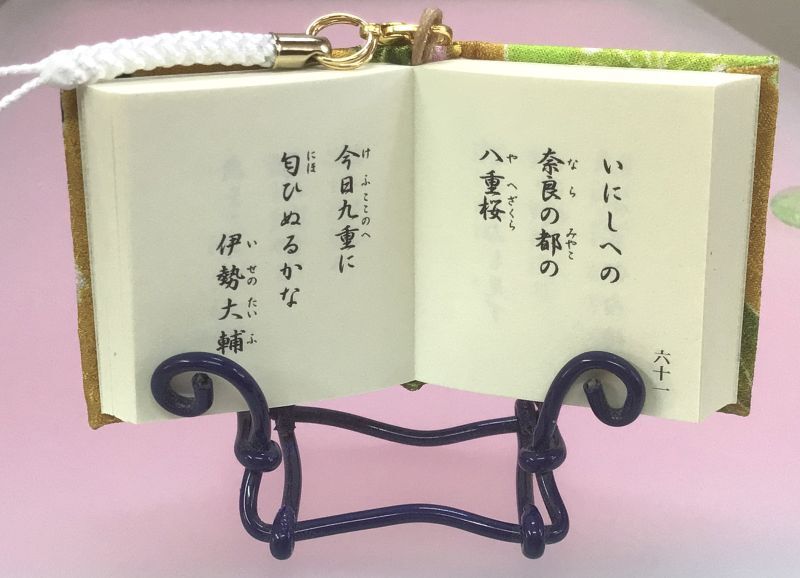 六十一
いにしへの
奈良の都の
八重桜
今日九重に
匂ひぬるかな
伊勢大輔